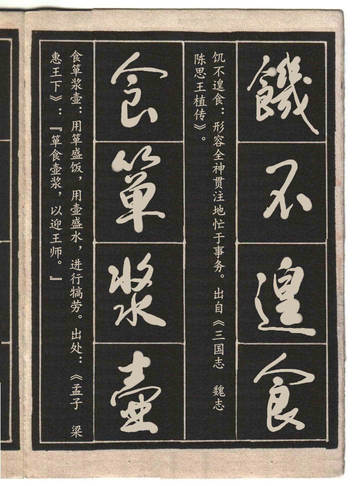 饑不遑食
饥不遑食：形容全神贯注地忙于事务。出自《三国志 魏志
陈思王植传》。
食箪浆壶
食箪浆壶：用箪盛饭，用壶盛水，进行犒劳。出处：《孟子 梁
惠王下》：『箪食壶浆，以迎王师。』